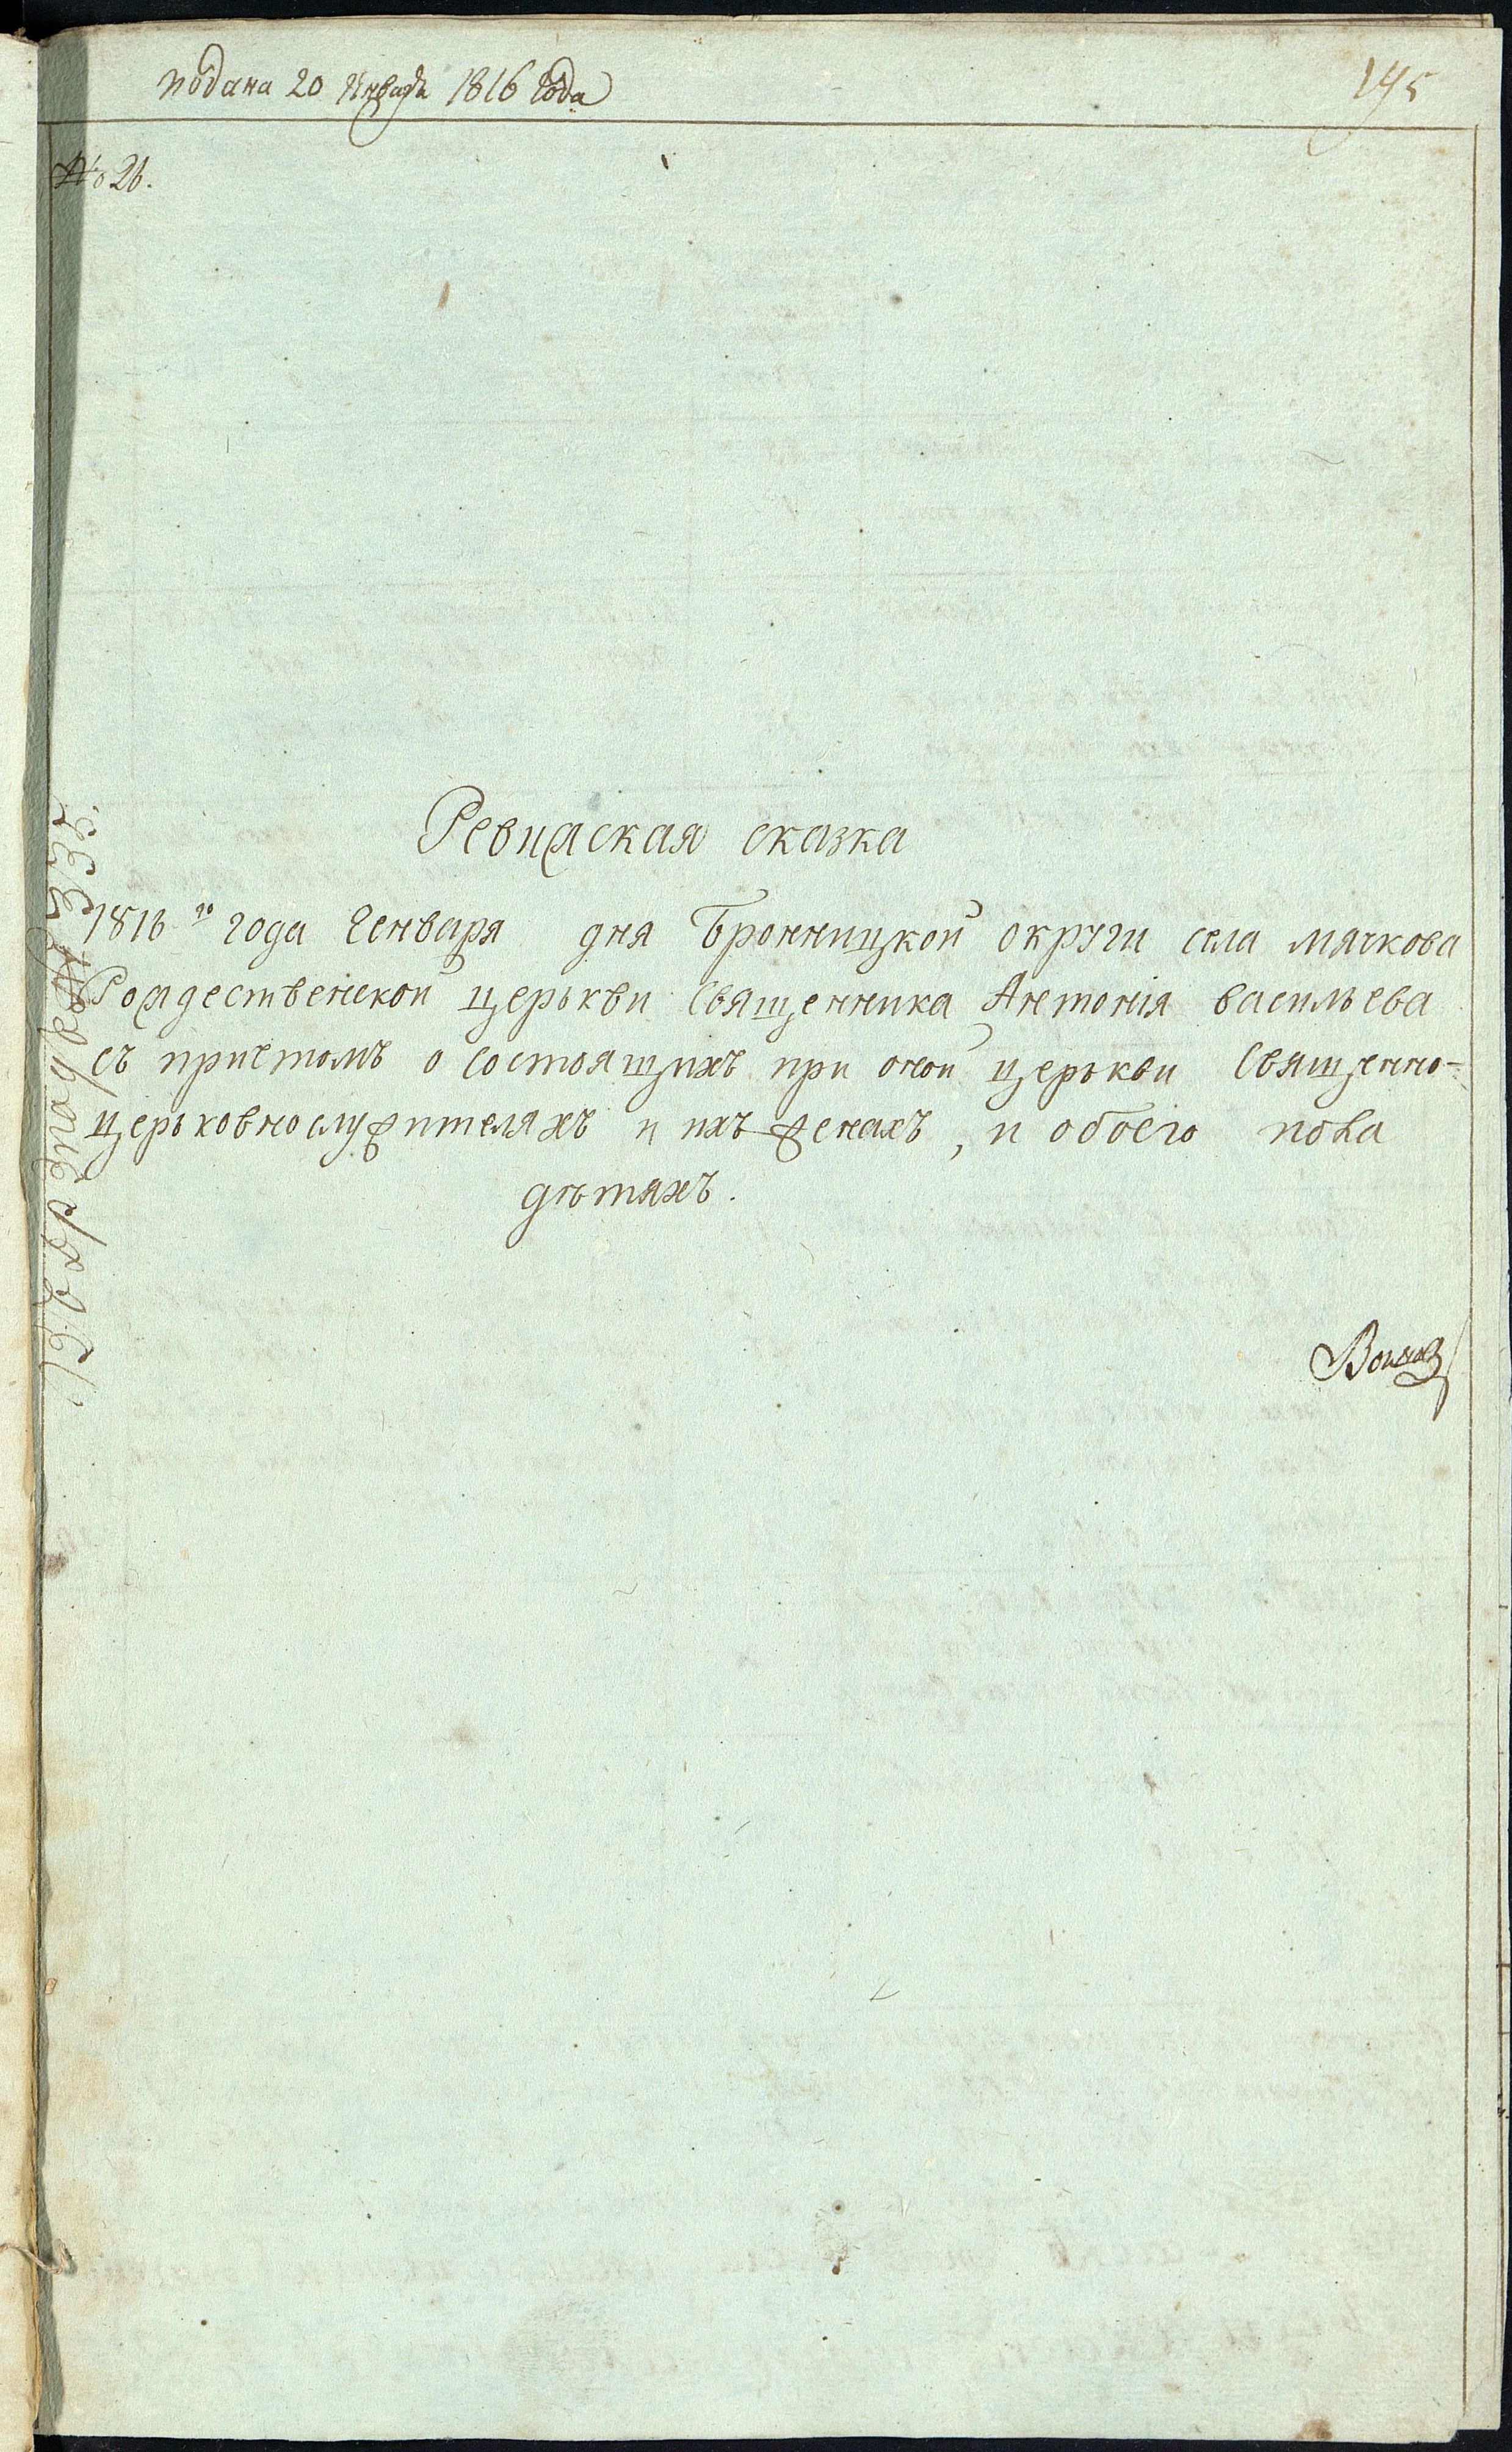 подана 20 Января 1816 года
145
№ 26.
Ревижская сказка
1816го года Генваря дня Бронницкой округи села мячкова
Рождественской церькви Священника Антонія васильева
съ причтомъ о состоящихъ при оной церькви Священно-
церьковнослужителяхъ и ихъ женахъ, и обоего пола
дѣтяхъ.